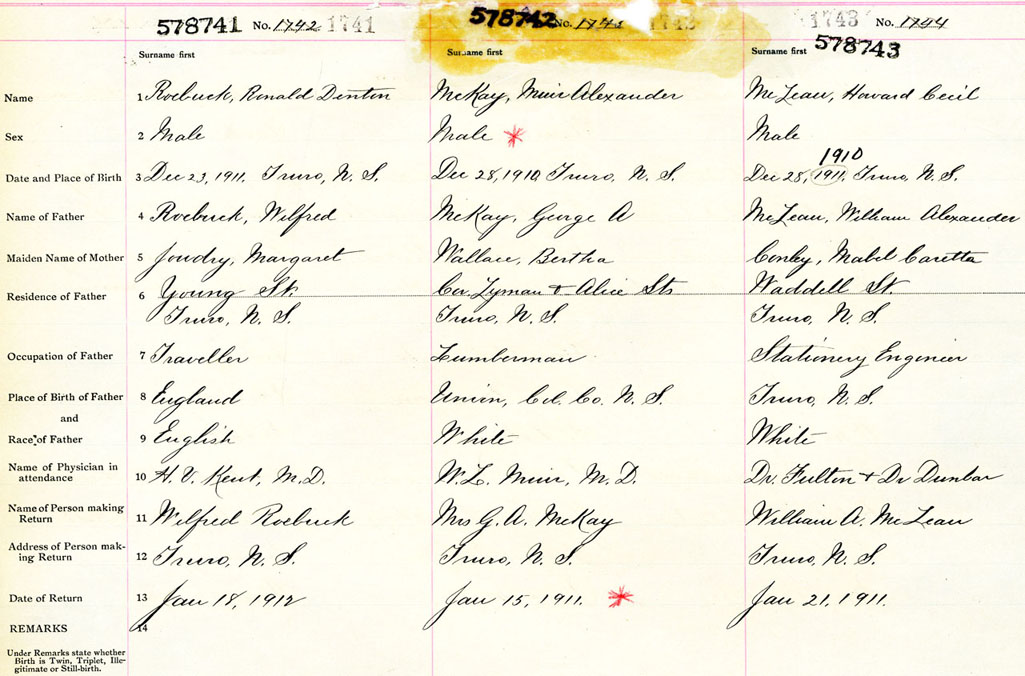 578741 No. 1742 1741 578742 No. 1743 1742 1743 No. 1744
Surname first Surname first Surname first 578743
Name 1 Roebuck, Ronald Denton McKay, Muir Alexander McLean, Howard Cecil
Sex 2 Male Male * Male
1910
Date and Place of Birth 3 Dec 23, 1911. Truro, N. S. Dec 28, 1910 Truro, N. S. Dec 28, 1911, Truro, N. S.
Name of Father 4 Roebuck, Wilfred McKay, George A McLean, William Alexander
Maiden Name of Mother 5 Joudry, Margaret Wallace, Bertha Conley, Mabel Caretta
Residence of Father 6 Young St. Cor Lyman & Alice Sts Waddell St
Truro, N. S. Truro, N. S. Truro, N. S.
Occupation of Father 7 Traveller Lumberman Stationery Engineer
Place of Birth of Father 8 England Union, Col. Co. N. S. Truro, N. S.
and
Race of Father 9 English White White
Name of Physician in
attendance 10 H. V. Kent, M.D. W. L. Muir, M.D. Dr. Fulton & Dr Dunbar
Name of Person making
Return 11 Wilfred Roebuck Mrs G. A. McKay William A. McLean
Address of Person mak-
ing Return 12 Truro, N. S. Truro, N. S. Truro, N. S.
Date of Return 13 Jan 18, 1912 Jan 15, 1911. * Jan 21, 1911.
REMARKS 14
Under Remarks state whether
Birth is Twin, Triplet, Ille-
gitimate or Still-birth.